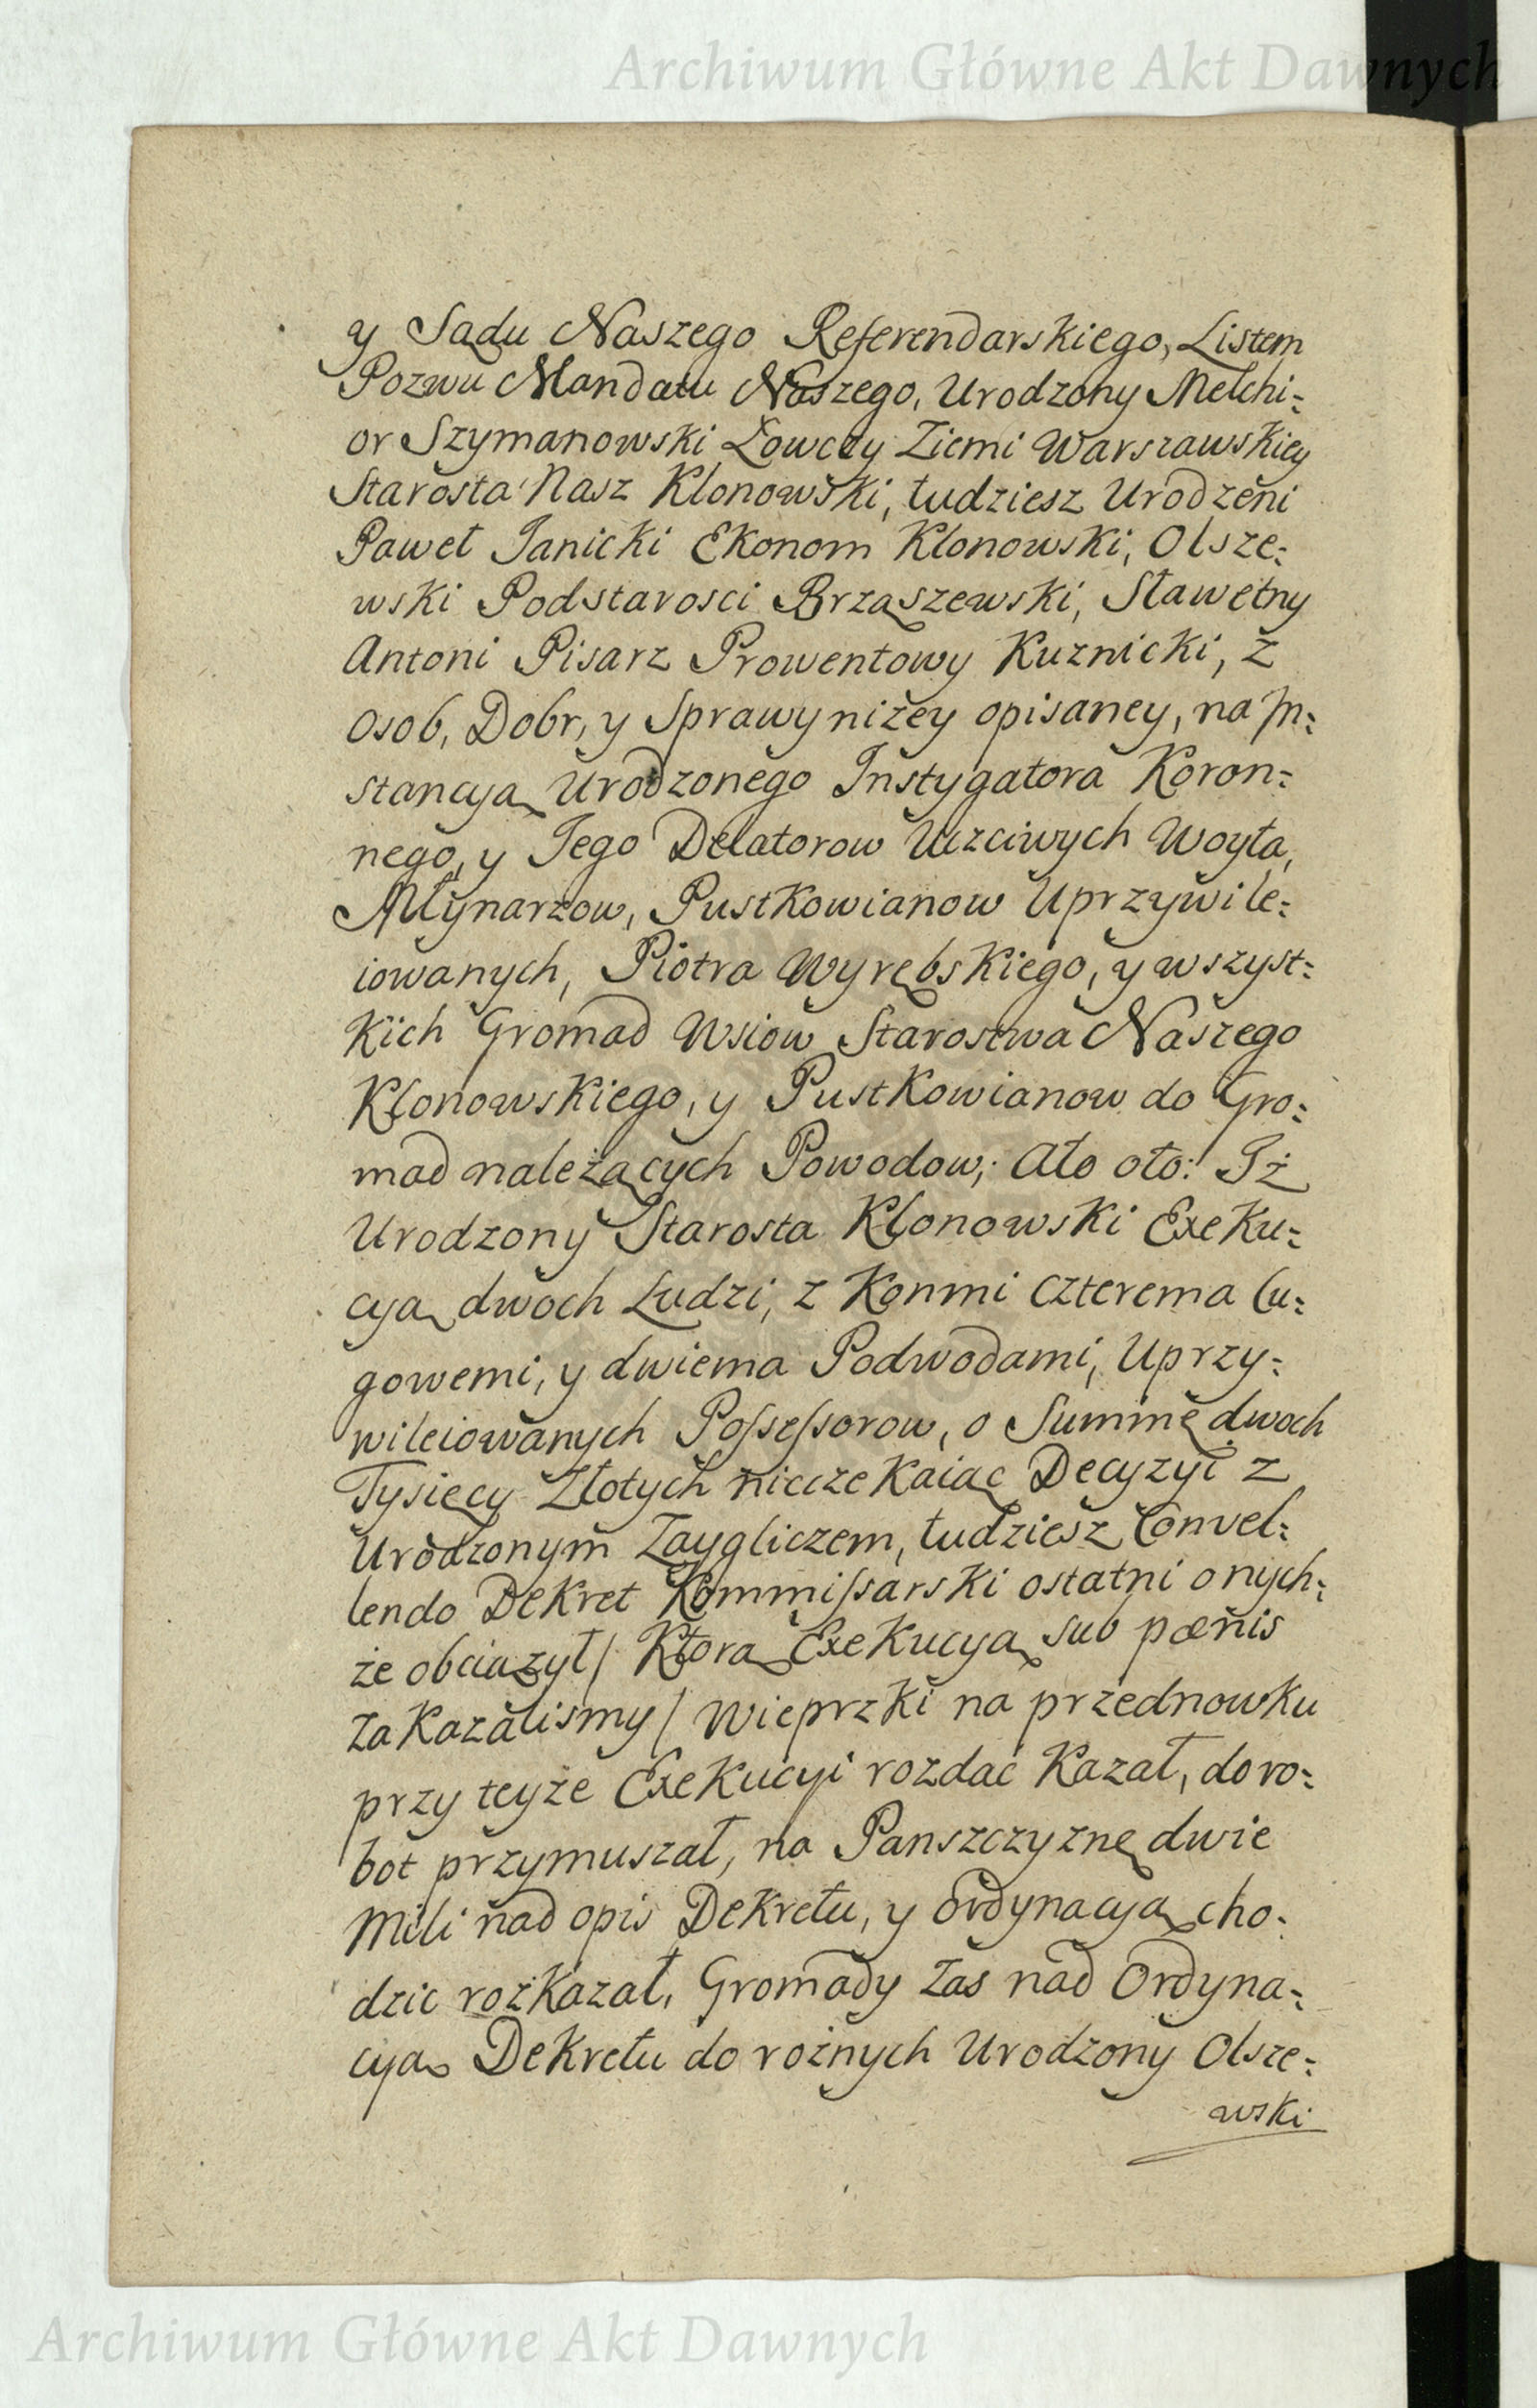 Archiwum Główne Akt Dawnych
y Sądu Naszego Referendarskiego, Listem
Pozwu Mandatu Naszego, Urodzony Melchi:
or Szymanowski Łowczy Ziemi Warszawskiey
Starosta Nasz Klonowski, tudziesz Urodzeni
Paweł Janicki Ekonom Klonowski, Olsze:
wski Podstarosci Brząszewski, Sławetny
Antoni Pisarz Prowentowy Kuznicki, z
Osob, Dobr, y Sprawy niżey opisaney, na In:
stancyą Urodzonego Instygatora Koron:
nego, y Jego Delatorow Uczciwych Woyta,
Młynarzow, Pustkowianow Uprzywile:
iowanych, Piotra Wyrębskiego, y wszyst:
kich Gromad Wsiow Starostwa Naszego
Klonowskiego, y Pustkowianow do Gro:
mad należących Powodow; Ato oto: Iż
Urodzony Starosta Klonowski Exeku:
cyą dwoch Ludzi, z Konmi czterema Cu:
gowemi, y dwiema Podwodami, Uprzy:
wileiowanych Possessorow, o Summę dwoch
Tysięcy Złotych nieczekaiąc Decyzyi z
Urodzonym Zaygliczem, tudziesz Convel:
lendo Dekret Kommissarski ostatni onych:
że obciązył / Ktorą Exekucyą sub pœnis
zakazalismy / Wieprzki na przednowku
przy teyże Exekucyi rozdać Kazał, do ro:
bot przymuszał, na Panszczyznę dwie
Mili nad opis Dekretu, y Ordynacyą cho:
dzic rozkazał, Gromady zas nad Ordyna:
cyą Dekretu do rożnych Urodzony Olsze:
wski
Archiwum Główne Akt Dawnych